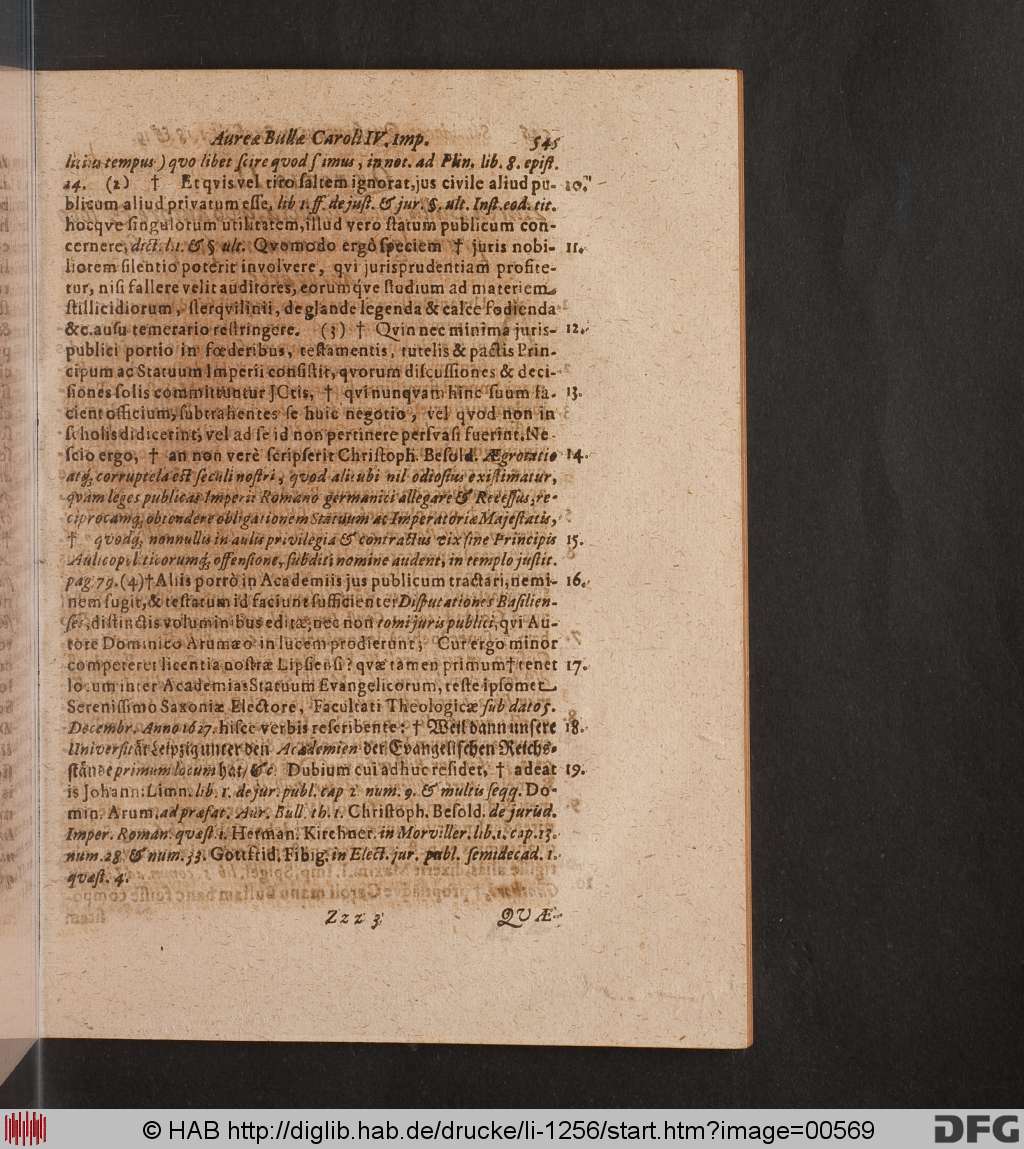 Aureæ Bullæ Caroli IV. Imp. 545
tempus) qvo libet scire qvod simus, in not. ad Plin. lib. 8. epist.
24. (2) † Et qvis vel tiro saltem ignorat, jus civile aliud pu- 10.
blicum aliud privatum esse, lib 1. ff. de just. & jur. §. ult. Inst. eod. tit.
hocqve singulorum utilitatem, illud vero statum publicum con-
cernere, dict. l. 1. & § ult. Qvomodo ergò speciem † juris nobi- 11.
liorem silentio poterit involvere, qvi jurisprudentiam profite-
tur, nisi fallere velit auditores, eorumq́ve studium ad materiem
stillicidiorum, sterqvilinii, de glande legenda & calce fodienda
&c. ausu temerario restringere. (3) † Qvin nec minima juris- 12.
publici portio in fœderibus, testamentis, tutelis & pactis Prin-
cipum ac Statuum Imperii consistit, qvorum discussiones & deci-
siones solis committuntur JCtis, † qvi nunqvam hinc suum fa- 13.
cient officium, subtrahentes se huic negotio, vel qvod non in
scholis didicerint, vel ad se id non pertinere persvasi fuerint. Ne-
scio ergo, † an non verè scripserit Christoph. Besold. Ægrotatio 14.
atq; corruptela est seculi nostri, quod alicubi nil odiosius existimatur,
qvam leges publicas Imperii Romano germanici allegare & Recessus, re-
ciprocamq; obtendere obligationem Statuum ac Imperatoriæ Majestatis,
† qvodq; nonnullis in aulis privilegia & contractus vix sine Principis 15.
Aulicopoliticorumq; offensione, subditi nomine audent, in templo justit.
pag. 79. (4) † Aliis porrò in Academiis jus publicum tractari, nemi- 16.
nem fugit, & testatum id faciunt sufficienter Disputationes Basilien-
ses, distinctis voluminibus editæ, nec non tomi juris publici, qvi Au-
tore Dominico Arumæo in lucem prodierunt, Cur ergo minor
competeret licentia nostræ Lipsiensi? qvæ tamen primum † tenet 17.
locum inter Academias Statuum Evangelicorum, teste ipsomet
Serenissimo Saxoniæ Electore, Facultati Theologicæ sub dato 5.
Decembr. Anno 1627. hisce verbis rescribente: † Weil dann unsere 18.
Universität Leipzig unter den Academien der Evangelischen Reichs-
stände primum locum hat/ &c. Dubium cui adhuc residet, † adeat 19.
is Johann: Limn. lib. 1. de jur. publ. cap 2. num. 9. & multis seqq. Do-
min. Arum. ad præfat. Aur. Bull. th. 1. Christoph. Besold. de jurüd.
Imper. Roman. quæst. 1. Herman. Kirchner. in Morviller. lib. 1. cap. 13.
num. 28. & num. 33. Gottfrid. Fibig. in Elect. jur. publ. semidecad. 1.
quæst. 4.
Zzz 3 QVÆ-
© HAB http://diglib.hab.de/drucke/li-1256/start.htm?image=00569
DFG